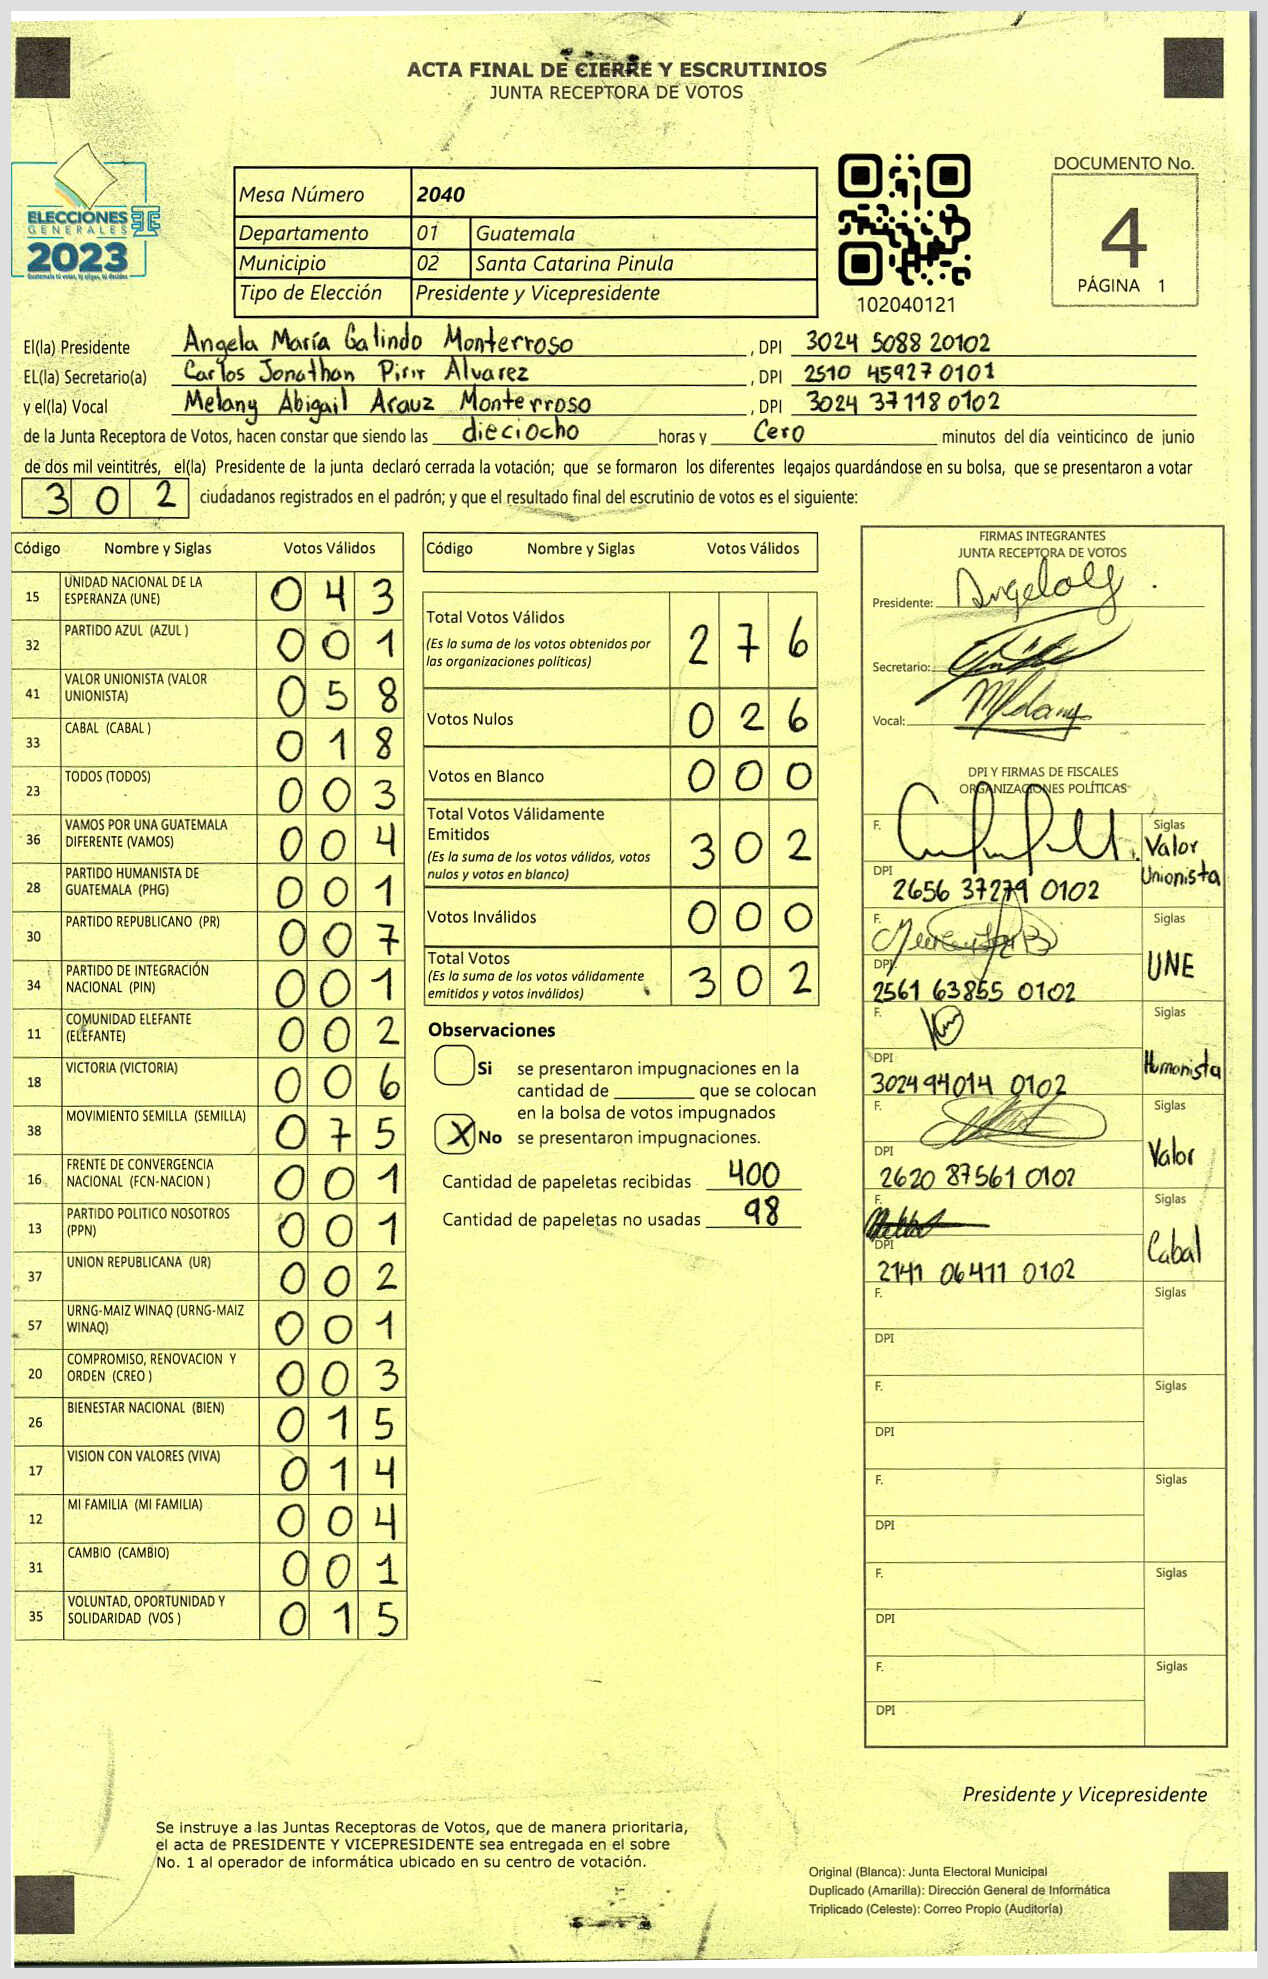 ACTA FINAL DE CIERRE Y ESCRUTINIOS
JUNTA RECEPTORA DE VOTOS
ELECCIONES
GENERALES
2023
Guatemala tú votas, tú eliges, tú decides
Mesa Número 2040
Departamento 01 Guatemala
Municipio 02 Santa Catarina Pinula
Tipo de Elección Presidente y Vicepresidente
102040121
DOCUMENTO No.
4
PÁGINA 1
El(la) Presidente Angela María Galindo Monterroso , DPI 3024 5088 20102
EL(la) Secretario(a) Carlos Jonathan Pirir Alvarez , DPI 2510 45927 0101
y el(la) Vocal Melany Abigail Arauz Monterroso , DPI 3024 37118 0102
de la Junta Receptora de Votos, hacen constar que siendo las dieciocho horas y Cero minutos del día veinticinco de junio
de dos mil veintitrés, el(la) Presidente de la junta declaró cerrada la votación; que se formaron los diferentes legajos guardándose en su bolsa, que se presentaron a votar
302 ciudadanos registrados en el padrón; y que el resultado final del escrutinio de votos es el siguiente:
Código Nombre y Siglas Votos Válidos
15 UNIDAD NACIONAL DE LA ESPERANZA (UNE) 043
32 PARTIDO AZUL (AZUL ) 001
41 VALOR UNIONISTA (VALOR UNIONISTA) 058
33 CABAL (CABAL ) 018
23 TODOS (TODOS) 003
36 VAMOS POR UNA GUATEMALA DIFERENTE (VAMOS) 004
28 PARTIDO HUMANISTA DE GUATEMALA (PHG) 001
30 PARTIDO REPUBLICANO (PR) 007
34 PARTIDO DE INTEGRACIÓN NACIONAL (PIN) 001
11 COMUNIDAD ELEFANTE (ELEFANTE) 002
18 VICTORIA (VICTORIA) 006
38 MOVIMIENTO SEMILLA (SEMILLA) 075
16 FRENTE DE CONVERGENCIA NACIONAL (FCN-NACION ) 001
13 PARTIDO POLITICO NOSOTROS (PPN) 001
37 UNION REPUBLICANA (UR) 002
57 URNG-MAIZ WINAQ (URNG-MAIZ WINAQ) 001
20 COMPROMISO, RENOVACION Y ORDEN (CREO ) 003
26 BIENESTAR NACIONAL (BIEN) 015
17 VISION CON VALORES (VIVA) 014
12 MI FAMILIA (MI FAMILIA) 004
31 CAMBIO (CAMBIO) 001
35 VOLUNTAD, OPORTUNIDAD Y SOLIDARIDAD (VOS ) 015
Código Nombre y Siglas Votos Válidos
Total Votos Válidos 276
(Es la suma de los votos obtenidos por
las organizaciones políticas)
Votos Nulos 026
Votos en Blanco 000
Total Votos Válidamente
Emitidos 302
(Es la suma de los votos válidos, votos
nulos y votos en blanco)
Votos Inválidos 000
Total Votos 302
(Es la suma de los votos válidamente
emitidos y votos inválidos)
Observaciones
Si se presentaron impugnaciones en la
cantidad de ________ que se colocan
en la bolsa de votos impugnados
X No se presentaron impugnaciones.
Cantidad de papeletas recibidas 400
Cantidad de papeletas no usadas 98
FIRMAS INTEGRANTES
JUNTA RECEPTORA DE VOTOS
Presidente:
Secretario:
Vocal:
DPI Y FIRMAS DE FISCALES
ORGANIZACIONES POLÍTICAS
F. Siglas Valor Unionista
DPI 2656 37279 0102
F. Siglas UNE
DPI 2561 63855 0102
F. Siglas Humanista
DPI 3024 94014 0102
F. Siglas Valor
DPI 2620 87561 0102
F. Siglas Cabal
DPI 2141 06411 0102
F. Siglas
DPI
F. Siglas
DPI
F. Siglas
DPI
F. Siglas
DPI
F. Siglas
DPI
Presidente y Vicepresidente
Se instruye a las Juntas Receptoras de Votos, que de manera prioritaria,
el acta de PRESIDENTE Y VICEPRESIDENTE sea entregada en el sobre
No. 1 al operador de informática ubicado en su centro de votación.
Original (Blanca): Junta Electoral Municipal
Duplicado (Amarilla): Dirección General de Informática
Triplicado (Celeste): Correo Propio (Auditoría)